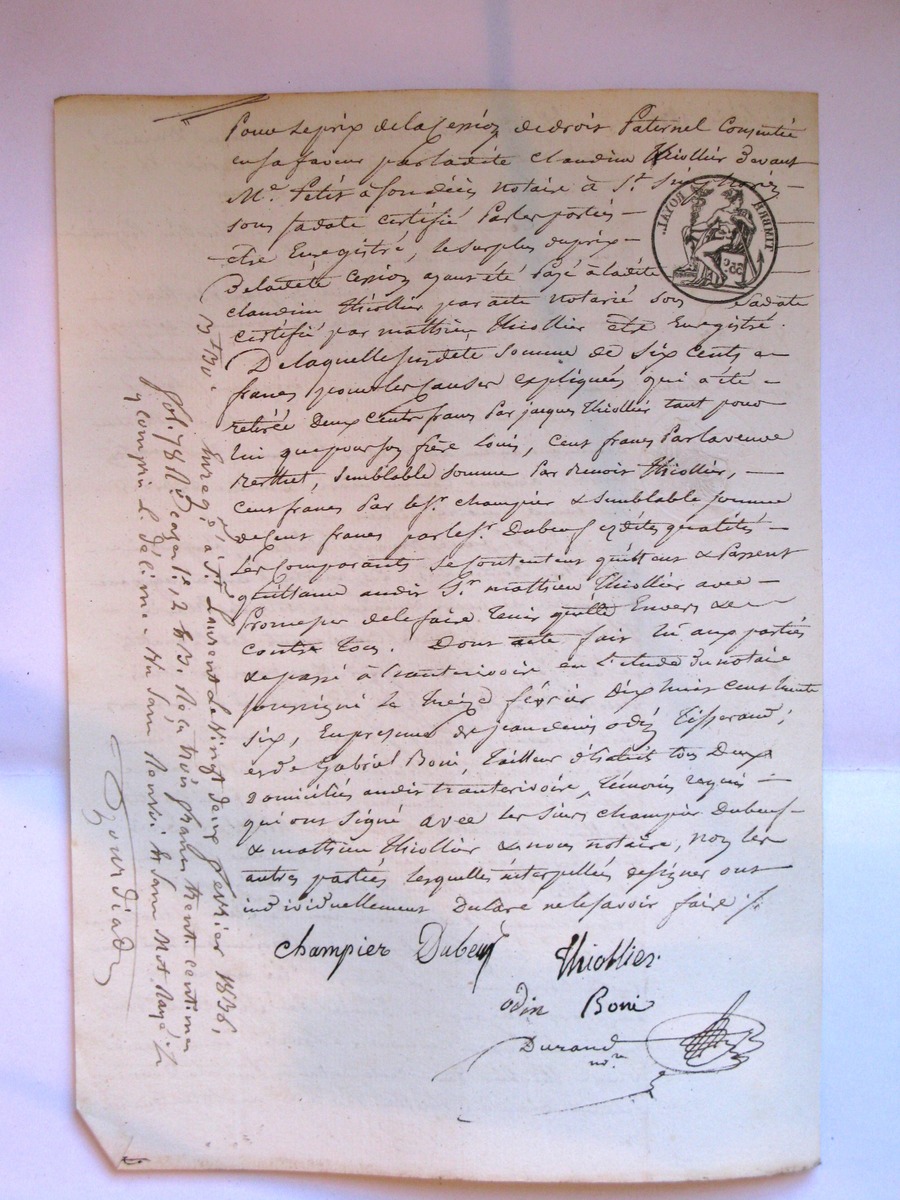 Pour le prix de la Cession de droit Paternel Consentie
en sa faveur par ladite claudine thiollier Devant
Me. Petit à fondéés notaire à St.
sous sa date certifié Par les parties
etre Enregistré, le surplus du prix
De ladite Cession ayant été Payé à ladite
claudine thiollier par acte notarié sous sa date
certifié par mathieu thiollier etre Enregistré.
De laquelle susdite somme de six cents
francs pour les causes expliquées qui a été
retirée Deux cents francs Par jacques thiollier tant pour
lui que pour son frère Louis, cent francs Par la veuve
Berthet, semblable somme Par Benoit thiollier,
cent francs Par le sr. champier & semblable somme
de cent francs par le sr. Dubeuf esdites qualités
Les Comparants se contentent quittent & Passent
quittance audit Sr. mathieu thiollier avec
Promesse de le faire tenir quitte Envers &
contre tous. Dont acte fait lu aux parties
& passé à tranterivoire en L'etude Du notaire
soussigné le treize février Dix huit cent trente
six, En presence de jean denis odin tisserand,
et de Gabriel Boni tailleur d'habits tous Deux
Domiciliés audit tranterivoire, témoins requis
qui ont signé avec les sieurs champier Dubeuf
& mathieu thiollier & nous notaire, non les
autres parties lesquelles interpellées de signer ont
individuellement Déclaré ne le savoir faire
champier Dubeuf thiollier
odin Boni
Durand
nore
TIMBRE ROYAL
35c
Enregé. à St. Laurent le vingt deux février 1836,
fol. 78 Ro. case 1, 2 & 3. Reçu trois francs trente centimes
y compris le Décime.
Gourdiad